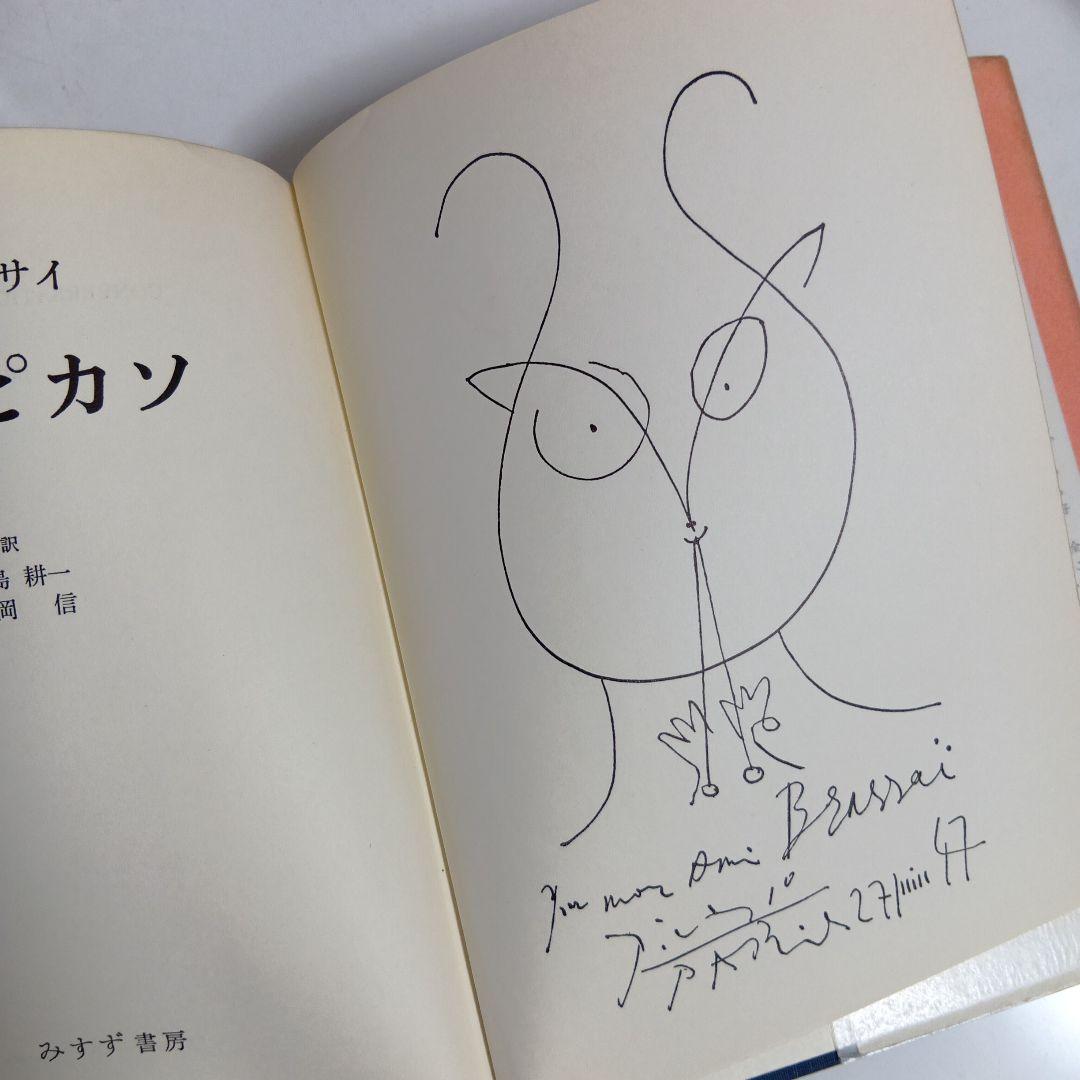 サイ
ピカソ
訳
島 耕一
岡 信
みすず書房
mon Ami Brassai
Picasso
PARis 27 juin 47